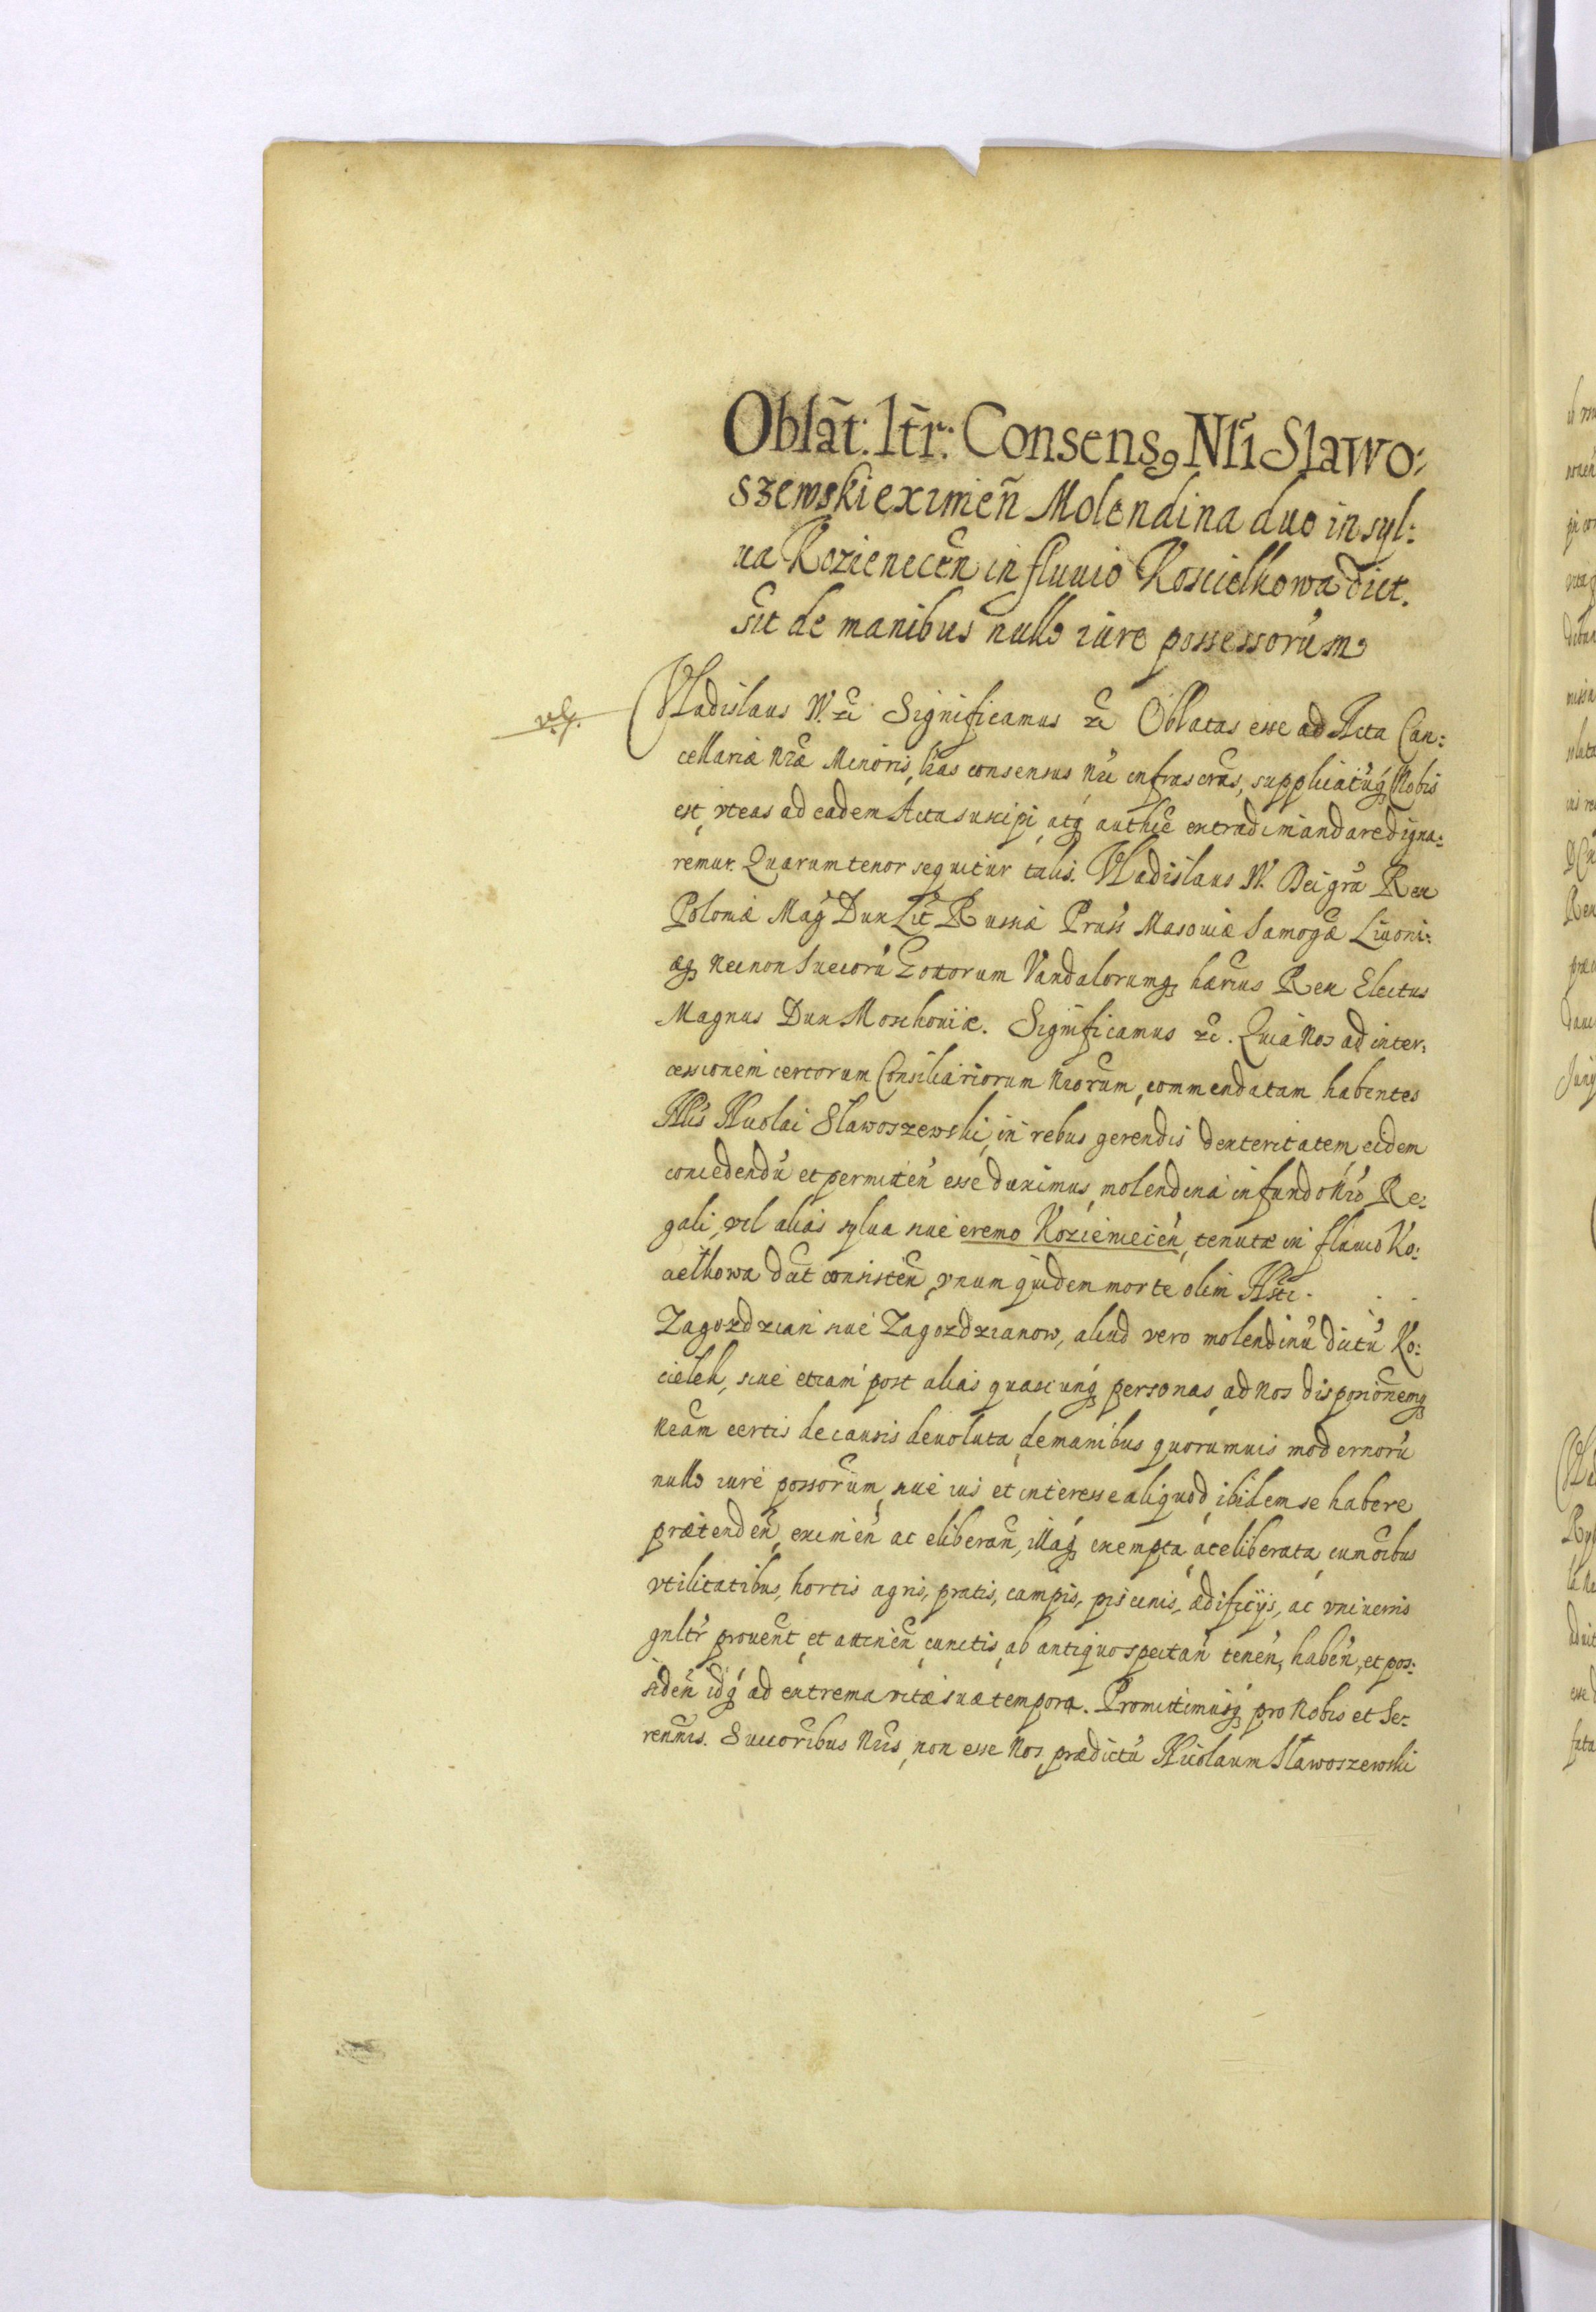 Oblat̃: lt̃r: Consensꝯ Nłi Sławo:
szewski eximeñ Molendina duo in syl:
ua Kozienecen̄ in fluuio Koscielkowa dict.
sit de manibus nullo iure possessorum
Vladislaus IV. etc̃ Significamus etc̃ Oblatas esse ad Acta Can:
cellariæ Nræ Minoris, lr̃as consensus Nri infrascrãs, supplicatũq Nobis
est, vt eas ad eadem Acta suscipi, atq authce extradi mandare digna:
remur. Quarum tenor sequitur talis. Vladislaus IV. Dei grã Rex
Poloniæ Mag Dux Lit Russiæ Pruss Masouiæ Samogæ Liuoni:
æq necnon Suecorũ Gottorum Vandalorumq hærius Rex Electus
Magnus Dux Moschouiæ. Significamus etc. Quia Nos ad inter:
cessionem certorum Consiliariorum Nrorum, commendatam habentes
Nlis Nicolai Slawoszewski, in rebus gerendis dexteritatem, eidem
concedendũ et permitteñ esse duximus, molendina in fundo Nro Re:
gali, vel alias sylua siue eremo Kozieniecen̄, tenutæ in fluuio Ko:
cielkowa dict consisteñ, vnum quidem morte olim Hsti . . .
Zagozdzian siue Zagozdzianow, aliud vero molendinũ dictũ Ko:
cielek, siue etiam post alias quascunq personas, ad Nos dispononemq
Nram certis de causis deuoluta, de manibus quorumuis modernorũ
nullo iure possorum, siue ius et interesse aliquod, ibidem se habere
prætendeñ, eximeñ ac eliberañ, illaq exempta, ac eliberata, cum oibus
vtilitatibus, hortis agris, pratis, campis, piscinis, ædificijs, ac vniuersis
gnltr prouent, et attineñ, cunctis, ab antiquo spectañ teneñ, habeñ, et pos:
sideñ idq ad extrema vitæ suæ tempora. Promittimusq pro Nobis et Se:
rennis. Succoribus Nris, non esse Nos, prædictũ Nicolaum Sławoszewski